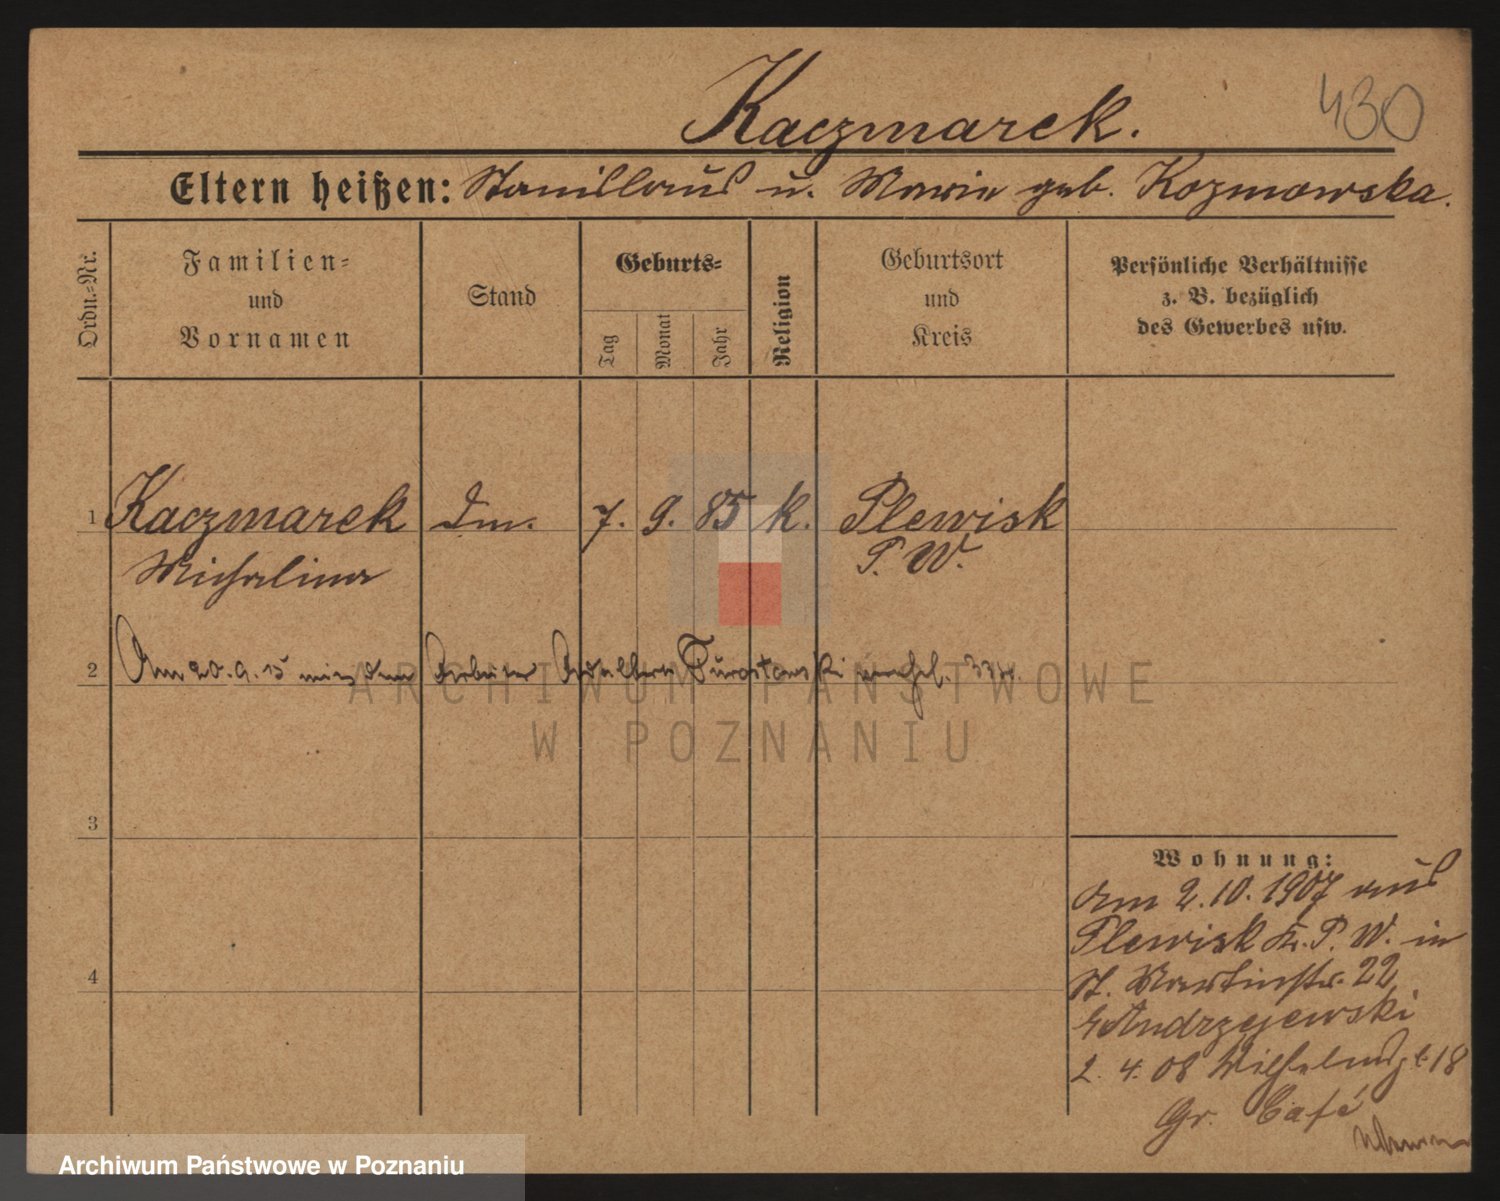 Kaczmarek.
430
Eltern heißen: Stanislaus u. Marie geb. Kozmowska.
Ordn.-Nr.
Familien-
und
Vornamen
Stand
Geburts-
Tag
Monat
Jahr
Religion
Geburtsort
und
Kreis
Persönliche Verhältnisse
z. B. bezüglich
des Gewerbes usw.
1 Kaczmarek Dm. 7. 9. 85 k. Plewisk
Michalina P. W.
2 Am 20.9.15 mit dem Arbeiter Adalbert verehel.
3
4
Wohnung:
Am 2.10.1907 aus
Plewisk Kr. P. W. in
St. Martinstr. 22
b/Andrzejewski
2. 4. 08 Wilhelmspl. 18
Gr. Café
ARCHIWUM PAŃSTWOWE
W POZNANIU
Archiwum Państwowe w Poznaniu